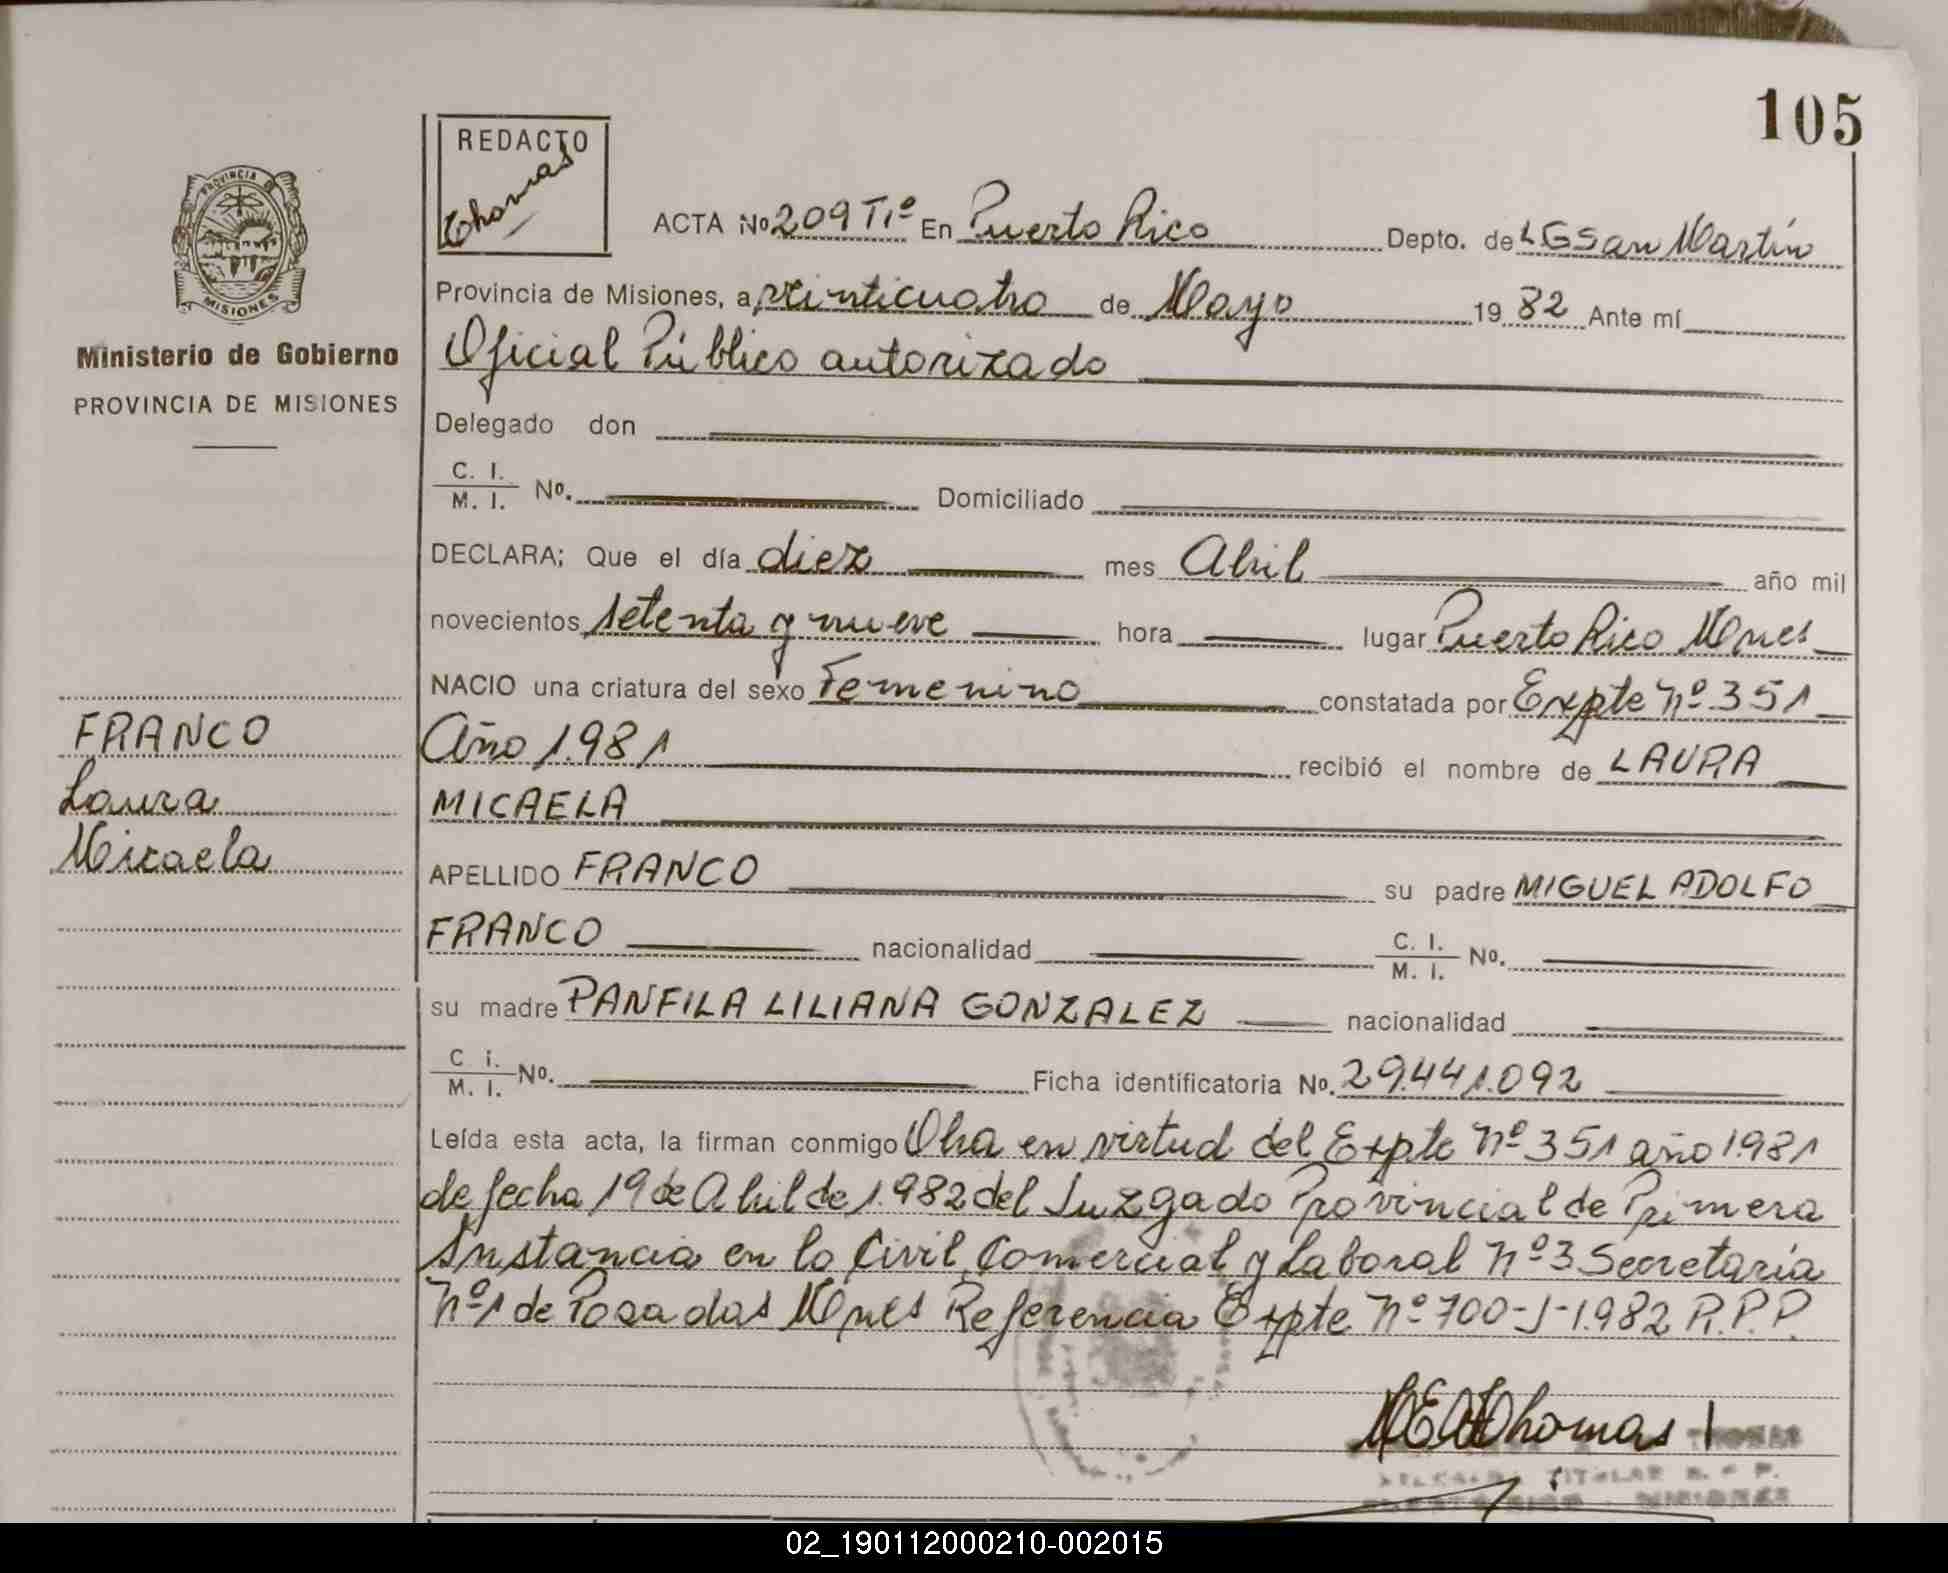 105
REDACTO
Thomas
PROVINCIA DE
MISIONES
Ministerio de Gobierno
PROVINCIA DE MISIONES
ACTA Nº 209 Tº En Puerto Rico Depto. de LGSan Martín
Provincia de Misiones, a veinticuatro de Mayo 19 82 Ante mí
Oficial Público autorizado
Delegado don
C. I.
M. I. Nº. Domiciliado
DECLARA; Que el día diez mes Abril año mil
novecientos setenta y nueve hora lugar Puerto Rico Mnes
NACIO una criatura del sexo Femenino constatada por Expte Nº 351
Año 1.981 recibió el nombre de LAURA
MICAELA
FRANCO
Laura
Micaela
APELLIDO FRANCO su padre MIGUEL ADOLFO
FRANCO nacionalidad C. I. M. I. Nº.
su madre PANFILA LILIANA GONZALEZ nacionalidad
C i. M. I. Nº. Ficha identificatoria Nº. 29.441.092
Leída esta acta, la firman conmigo en virtud del Expte Nº 351 año 1981
de fecha 19 de Abril de 1.982 del Juzgado Provincial de Primera
Instancia en lo Civil, Comercial y Laboral Nº 3 Secretaría
Nº 1 de Posadas Mnes Referencia Expte Nº 700-J-1.982 R.P.P.
Thomas
THOMAS
TITULAR R. P.
MISIONES
02_190112000210-002015